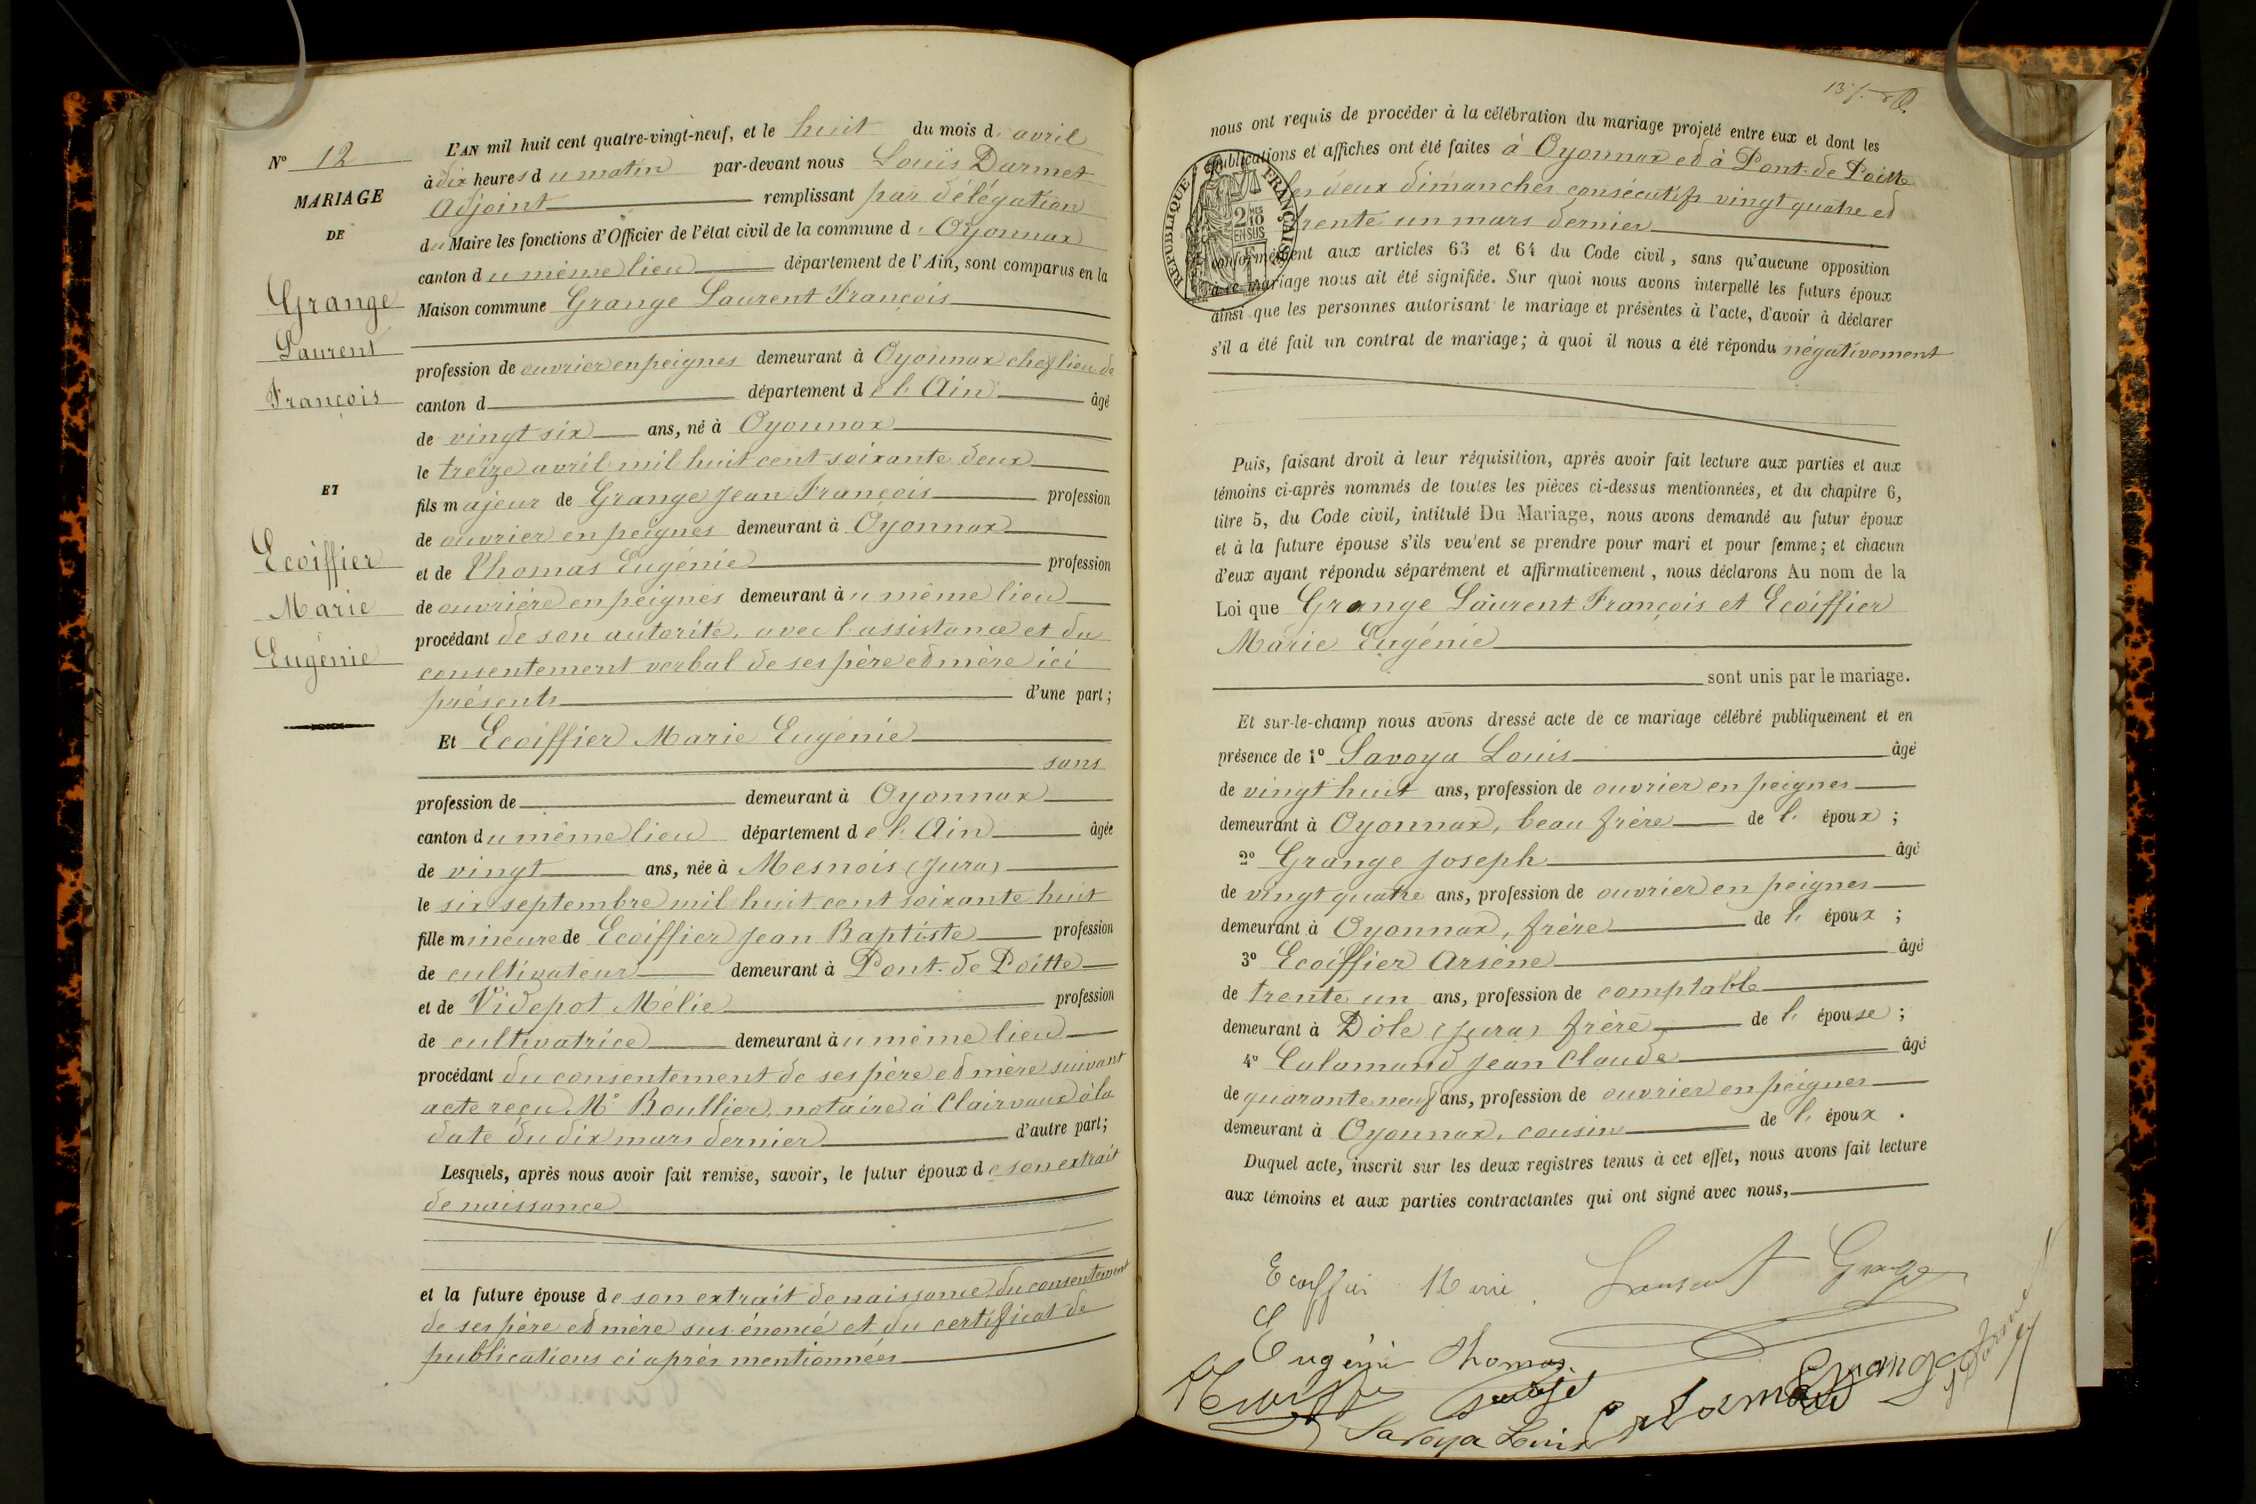 N° 12
MARIAGE
DE
Grange
Laurent
François
ET
Ecoiffier
Marie
Eugénie
L'AN mil huit cent quatre-vingt-neuf, et le huit du mois d' avril
à dix heures du matin par-devant nous Louis Darmet
Adjoint remplissant par délégation
du Maire les fonctions d'Officier de l'état civil de la commune d' Oyonnax
canton du même lieu département de l'Ain, sont comparus en la
Maison commune Grange Laurent François
profession de ouvrier en peignes demeurant à Oyonnax chef lieu de
canton d département de l'Ain âgé
de vingt six ans, né à Oyonnax
le treize avril mil huit cent soixante deux
fils majeur de Grange Jean François profession
de ouvrier en peignes demeurant à Oyonnax
et de Thomas Eugénie profession
de ouvrière en peignes demeurant au même lieu
procédant de son autorité, avec l'assistance et du
consentement verbal de ses père et mère ici
présents d'une part ;
Et Ecoiffier Marie Eugénie
sans
profession de demeurant à Oyonnax
canton du même lieu département de l'Ain âgée
de vingt ans, née à Mesnois (Jura)
le six septembre mil huit cent soixante huit
fille mineure de Ecoiffier Jean Baptiste profession
de cultivateur demeurant à Pont-de-Poitte
et de Videpot Mélie profession
de cultivatrice demeurant au même lieu
procédant du consentement de ses père et mère suivant
acte reçu Me Roullier, notaire à Clairvaux à la
date du dix mars dernier d'autre part;
Lesquels, après nous avoir fait remise, savoir, le futur époux de son extrait
de naissance
et la future épouse de son extrait de naissance du consentement
de ses père et mère sus énoncé et du certificat de
publications ci après mentionnées
nous ont requis de procéder à la célébration du mariage projeté entre eux et dont les
publications et affiches ont été faites à Oyonnax et à Pont-de-Poitte
les deux dimanches consécutifs vingt quatre et
trente un mars dernier
conformément aux articles 63 et 64 du Code civil, sans qu'aucune opposition
à ce mariage nous ait été signifiée. Sur quoi nous avons interpellé les futurs époux
ainsi que les personnes autorisant le mariage et présentes à l'acte, d'avoir à déclarer
s'il a été fait un contrat de mariage; à quoi il nous a été répondu négativement
REPUBLIQUE FRANÇAISE
2 MES 10 EN SUS
Puis, faisant droit à leur réquisition, après avoir fait lecture aux parties et aux
témoins ci-après nommés de toutes les pièces ci-dessus mentionnées, et du chapitre 6,
titre 5, du Code civil, intitulé Du Mariage, nous avons demandé au futur époux
et à la future épouse s'ils veulent se prendre pour mari et pour femme; et chacun
d'eux ayant répondu séparément et affirmativement, nous déclarons Au nom de la
Loi que Grange Laurent François et Ecoiffier
Marie Eugénie
sont unis par le mariage.
Et sur-le-champ nous avons dressé acte de ce mariage célébré publiquement et en
présence de 1° Savoya Louis âgé
de vingt huit ans, profession de ouvrier en peignes
demeurant à Oyonnax, beau frère de l' époux ;
2° Grange Joseph âgé
de vingt quatre ans, profession de ouvrier en peignes
demeurant à Oyonnax, frère de l' époux ;
3° Ecoiffier Arsène âgé
de trente un ans, profession de comptable
demeurant à Dôle (Jura) frère de l' épouse ;
4° Calamand Jean Claude âgé
de quarante neuf ans, profession de ouvrier en peignes
demeurant à Oyonnax, cousin de l' époux .
Duquel acte, inscrit sur les deux registres tenus à cet effet, nous avons fait lecture
aux témoins et aux parties contractantes qui ont signé avec nous,
Ecoiffier Marie Laurent Grange
Eugénie Thomas
Grange
Savoya Louis Calamand